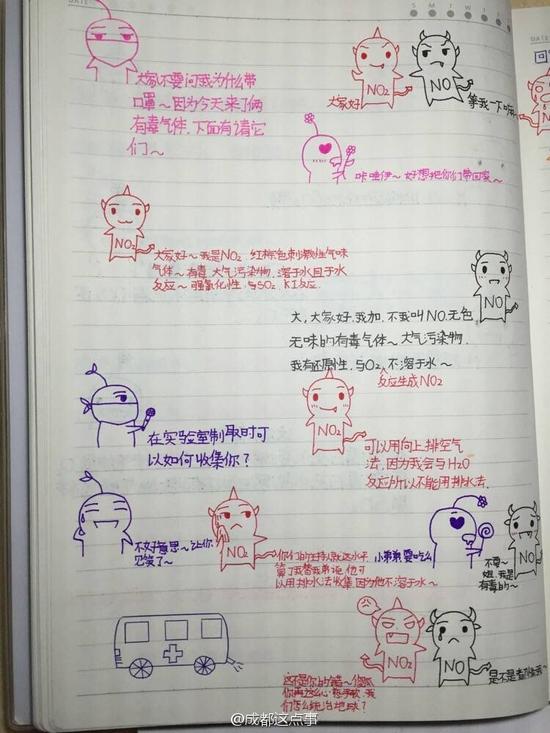 DATE
S M T W T F S
DATE
大家不要问我为什么带
口罩～因为今天来了俩
有毒气体.下面有请它
们～
NO₂
NO
大家好
等我一下嘛
咔哇伊～ 好想把你们带回家～
NO₂
大家好～我是NO₂ 红棕色刺激性气味
气体～有毒.大气污染物.溶于水且于水
反应～ 强氧化性.与SO₂、KI反应.
NO
大,大家好.我加.不我叫NO.无色
无味的有毒气体～大气污染物.
我有还原性.与O₂反应生成NO₂ 不溶于水～
在实验室制取时可
以如何收集你？
NO₂
可以用向上排空气
法.因为我会与H₂O
反应所以不能用排水法.
不好意思～让你
见笑了～
NO₂
你们的主持人就这水平
算了我替我弟说.他可
以用排水法收集.因为他不溶于水～
小弟弟要吃么
NO
不要～
姐.我是
有毒的～
NO₂
NO
这不是你的错～傻瓜
你再这么
们怎么统治地球？
是不是
@成都这点事